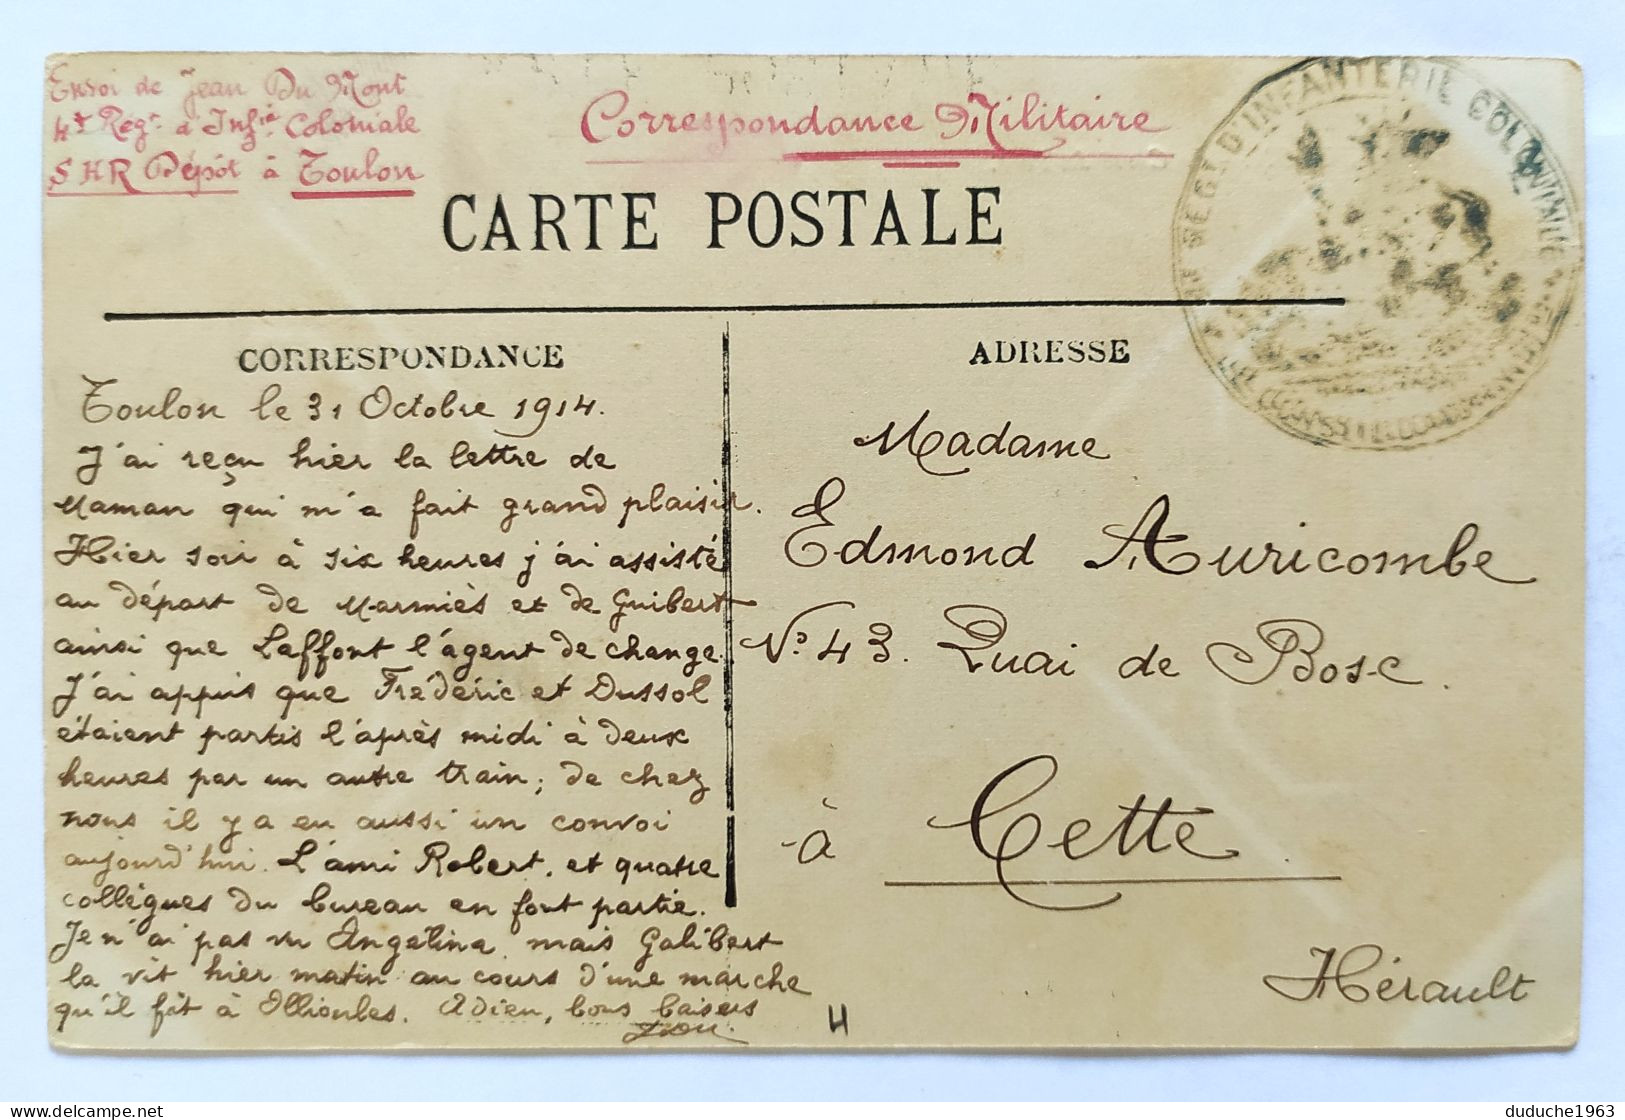 Envoi de Jean Du Mont
4t Regt d'Infie Coloniale
SHR Dépôt à Toulon
Correspondance Militaire
D'INFANTERIE COLONIALE
CARTE POSTALE
CORRESPONDANCE
ADRESSE
Toulon le 31 Octobre 1914.
J'ai reçu hier la lettre de
Maman qui m'a fait grand plaisir.
Hier soir à six heures j'ai assisté
au départ de Marmiès et de Guibert
ainsi que Laffont l'agent de change.
J'ai appris que Frédéric et Dussol
étaient partis l'après midi à deux
heures par un autre train; de chez
nous il y a eu aussi un convoi
aujourd'hui. L'ami Robert, et quatre
collègues du bureau en font partie.
Je n'ai pas vu Angelina mais Galibert
la vit hier matin au cours d'une marche
qu'il fit à Ollioules. Adieu, bons baisers
Jean.
Madame
Edmond Auricombe
No. 43. Quai de Bosc.
à Cette
Hérault
H
delcampe.net
duduche1963